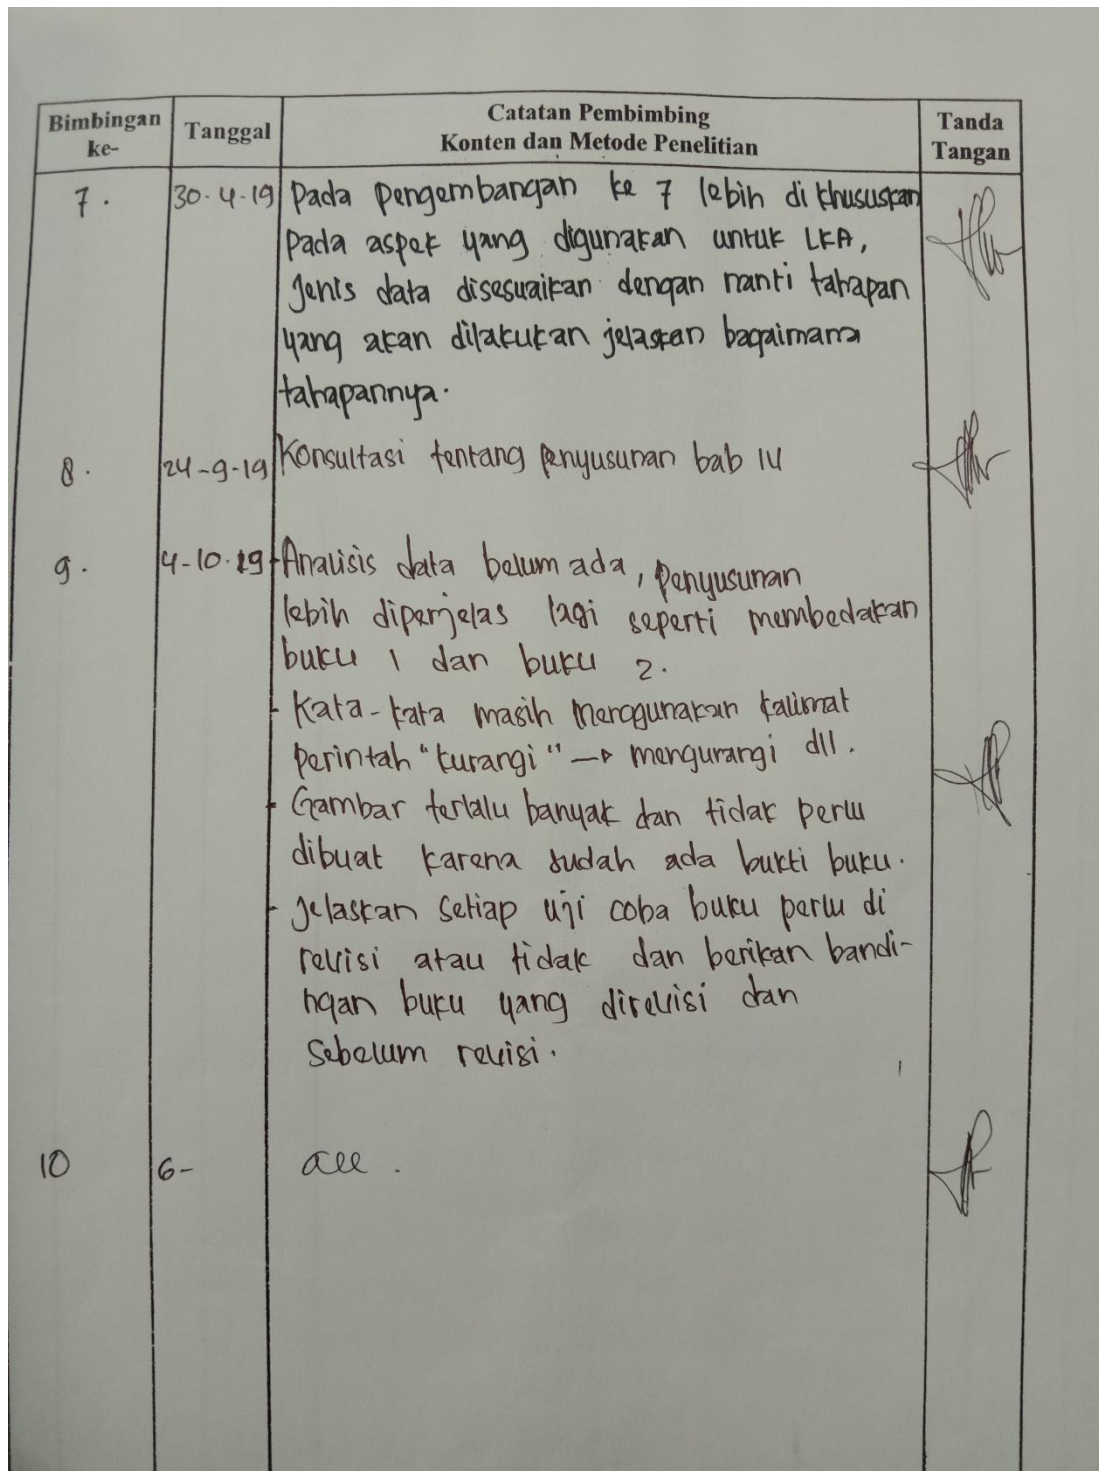 Bimbingan ke-
Tanggal
Catatan Pembimbing
Konten dan Metode Penelitian
Tanda Tangan
7. 30-4-19 Pada Pengembangan ke 7 lebih di khususkan
pada aspek yang digunakan untuk LKA,
Jenis data disesuaikan dengan nanti tahapan
yang akan dilakukan jelaskan bagaimana
tahapannya.
8. 24-9-19 Konsultasi tentang penyusunan bab IV
9. 4-10-19 - Analisis data belum ada, penyusunan
lebih diperjelas lagi seperti membedakan
buku 1 dan buku 2.
- Kata-kata masih menggunakan kalimat
perintah "kurangi" → mengurangi dll.
- Gambar terlalu banyak dan tidak perlu
dibuat karena sudah ada bukti buku.
- Jelaskan setiap uji coba buku perlu di
revisi atau tidak dan berikan bandi-
ngan buku yang direvisi dan
Sebelum revisi.
10 6- acc.